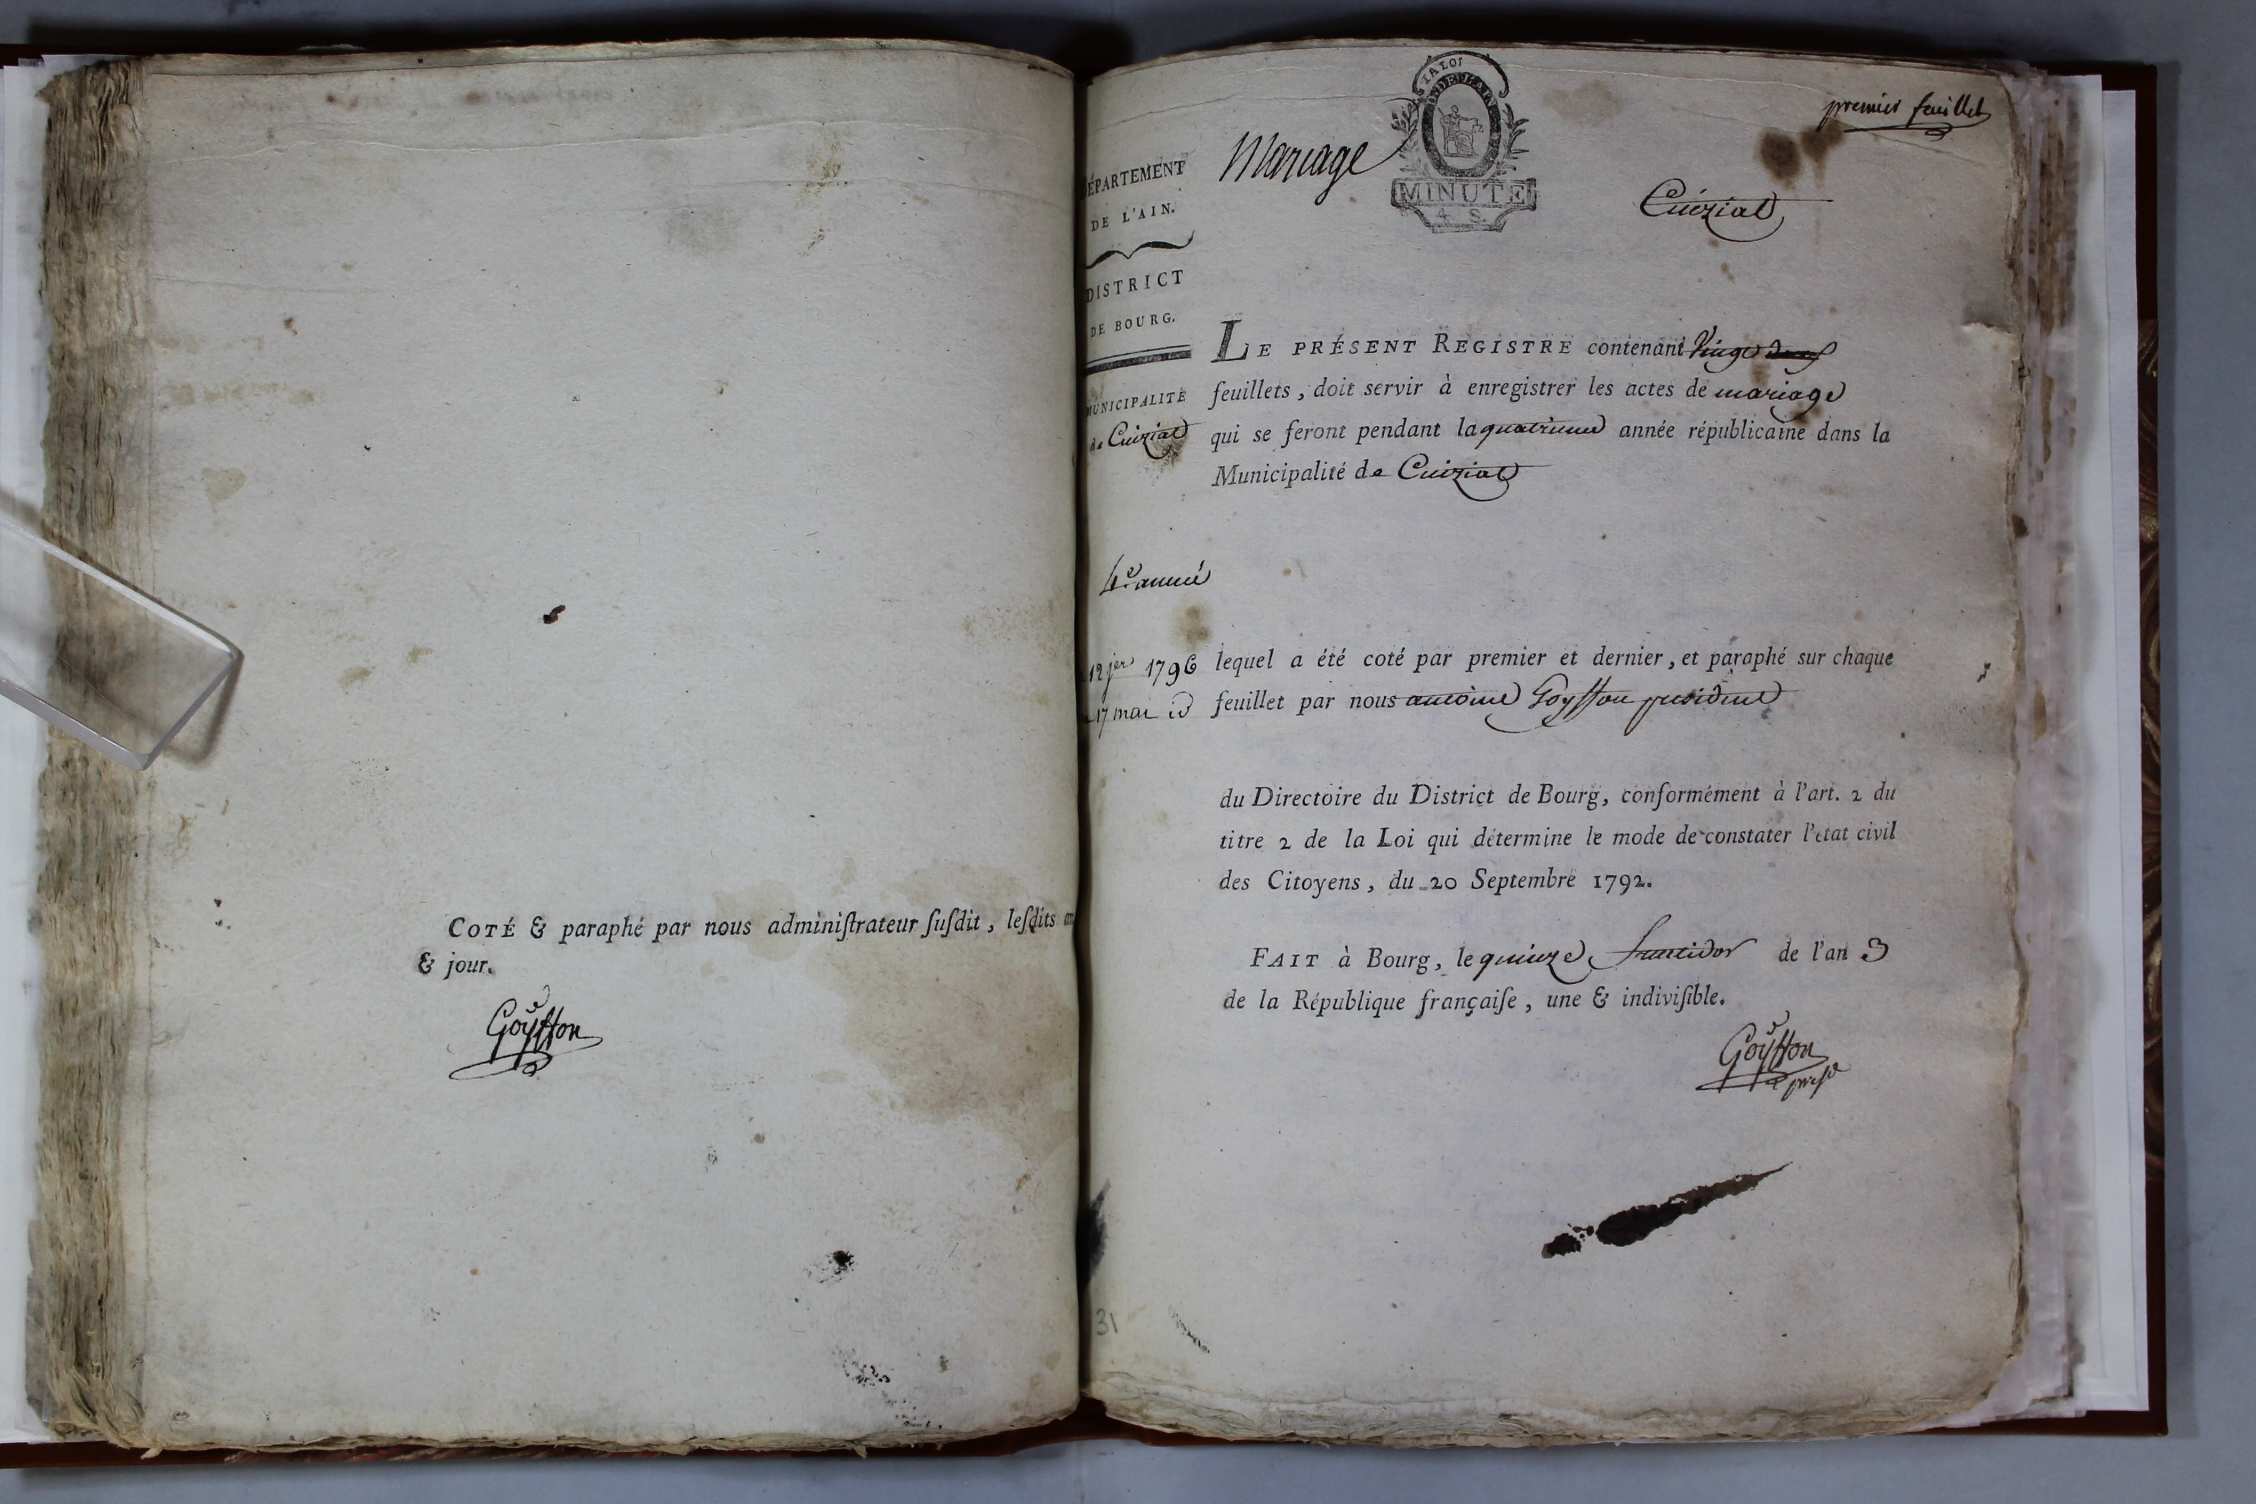 COTÉ & paraphé par nous adminiſtrateur ſuſdit, leſdits an
& jour.
Goyffon
premier feuillet
LA LOI
Mariage
MINUTE
4. S.
Cuiziat
DÉPARTEMENT
DE L'AIN.
DISTRICT
DE BOURG.
MUNICIPALITÉ
de Cuiziat
LE PRÉSENT REGISTRE contenant Vingt
feuillets, doit servir à enregistrer les actes de mariage
qui se feront pendant la quatrieme année républicaine dans la
Municipalité de Cuiziat
4e année
12 jer 1796
17 mai id
lequel a été coté par premier et dernier, et paraphé sur chaque
feuillet par nous antoine Goyffon president
du Directoire du District de Bourg, conformément à l'art. 2 du
titre 2 de la Loi qui détermine le mode de constater l'état civil
des Citoyens, du 20 Septembre 1792.
FAIT à Bourg, le quinze fructidor de l'an 3
de la République françaiſe, une & indiviſible.
Goyffon
presd
31